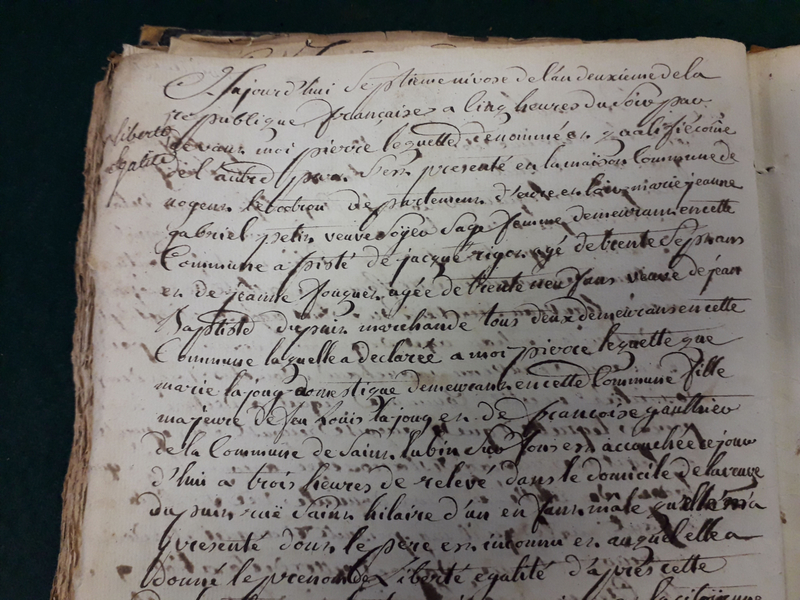 aujourd'hui septieme nivose de l'an deuxieme de la
republique francaise a cinq heures du soir par
liberté
devant moi pierre lequette denommé en qualifié comme
égalité
de l'autre part s'est presenté en la maison commune de
nogent le rotrou departement d'eure en loir marie jeanne
gabriel petit veuve sage femme demeurant en cette
commune assisté de jacque rigot agé de trente sept ans
en de jeanne fouquet agée de trente neuf ans veuve de jean
baptiste dupuis marchande tous deux demeurans en cette
commune laquelle a declarée a moi pierre lequette que
marie lajoug domestique demeurant en cette commune fille
majeure de feu louis lajoug en de francoise gaulthier
de la commune de saint lubin sur est accouchée ce jour
d'hui a trois heures de relevé dans le domicile de la veuve
dupuis rue saint hilaire d'un enfant male qu'elle m'a
presenté dont le pere est inconnu en auquel elle a
donné le prenom de liberté egalité d'apres cette
la citoienne